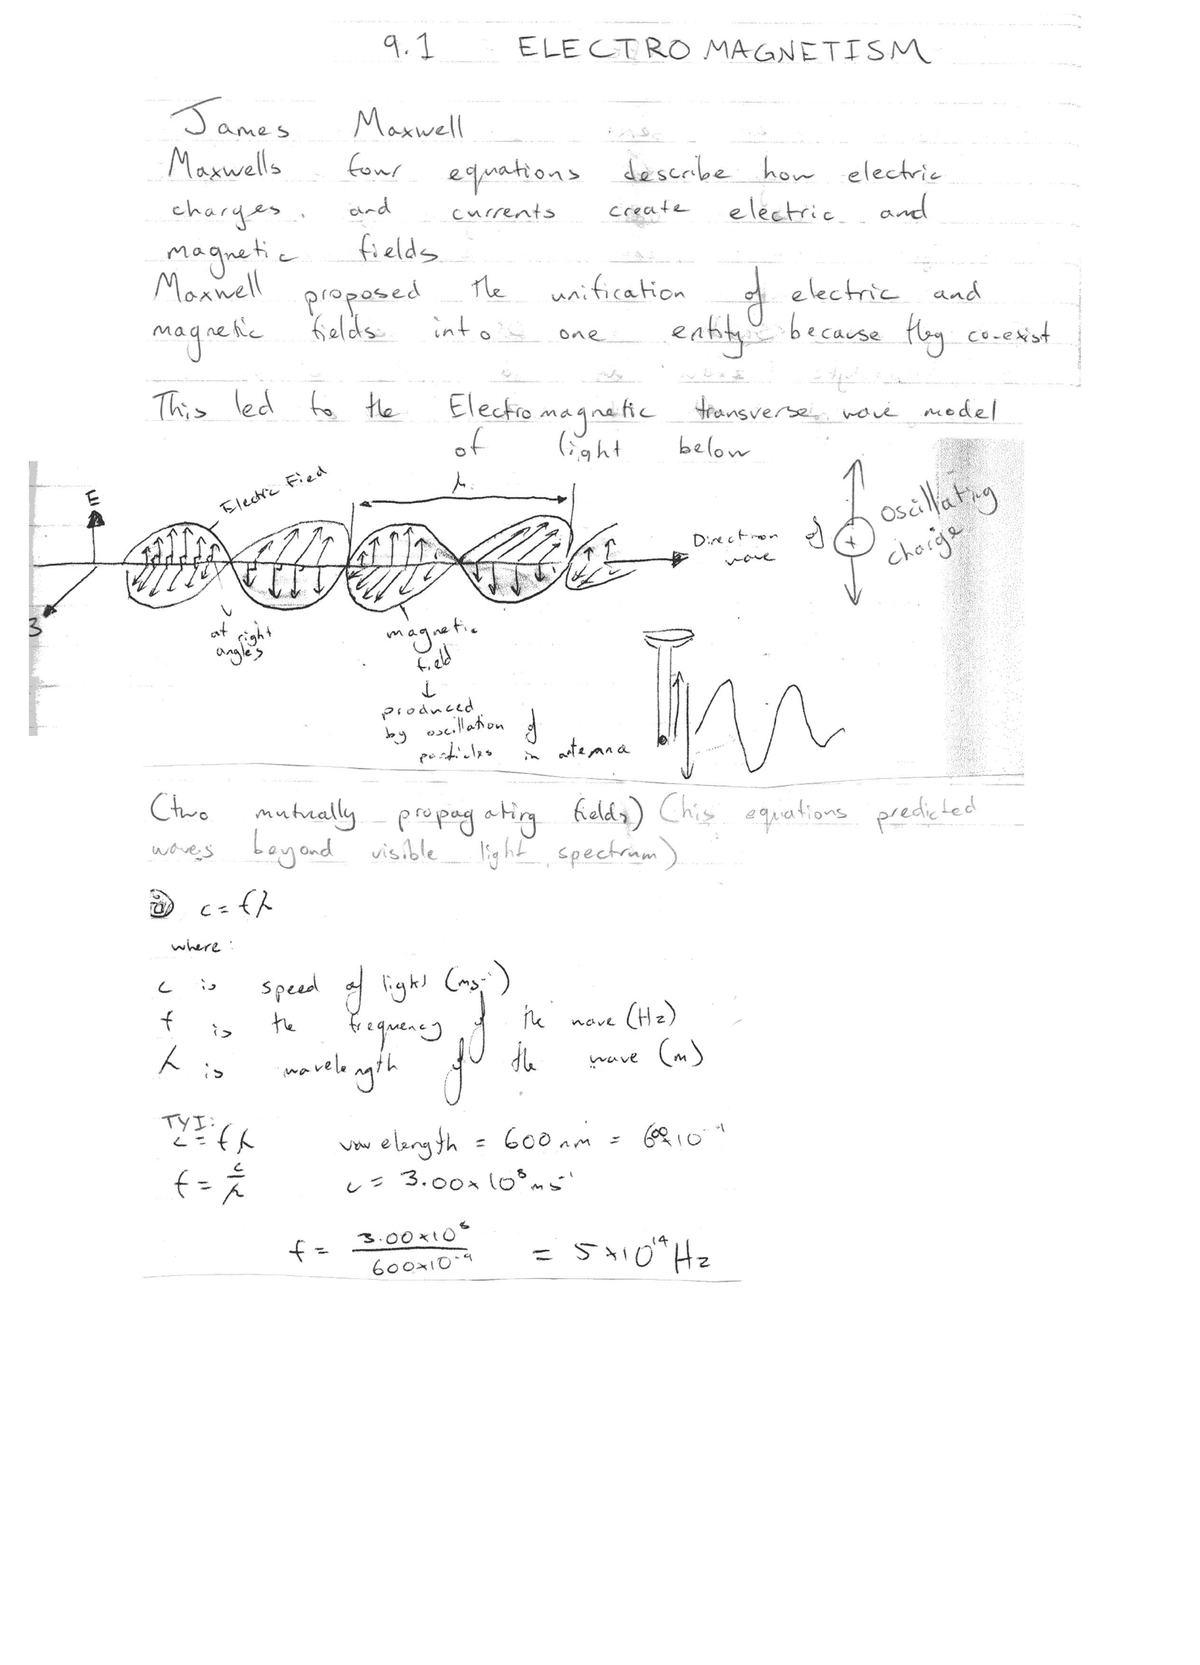 9.1 ELECTROMAGNETISM
James Maxwell
Maxwells four equations describe how electric
charges and currents create electric and
magnetic fields
Maxwell proposed the unification of electric and
magnetic fields into one entity because they co-exist
This led to the Electromagnetic transverse wave model
of light below
E
Electric Fied
λ
Direction of
wave
oscillating
charge
+
B
at right
angles
magnetic
field
↓
produced
by oscillation of
particles in antenna
(two mutually propagating fields) (his equations predicted
waves beyond visible light spectrum)
c = fλ
where:
c is speed of light (ms⁻¹)
f is the frequency of the wave (Hz)
λ is wavelength of the wave (m)
TYI:
c = fλ wavelength = 600 nm = 600x10⁻⁹
f = c/λ c = 3.00x10⁸ms⁻¹
f = 3.00x10⁸/600x10⁻⁹ = 5x10¹⁴Hz